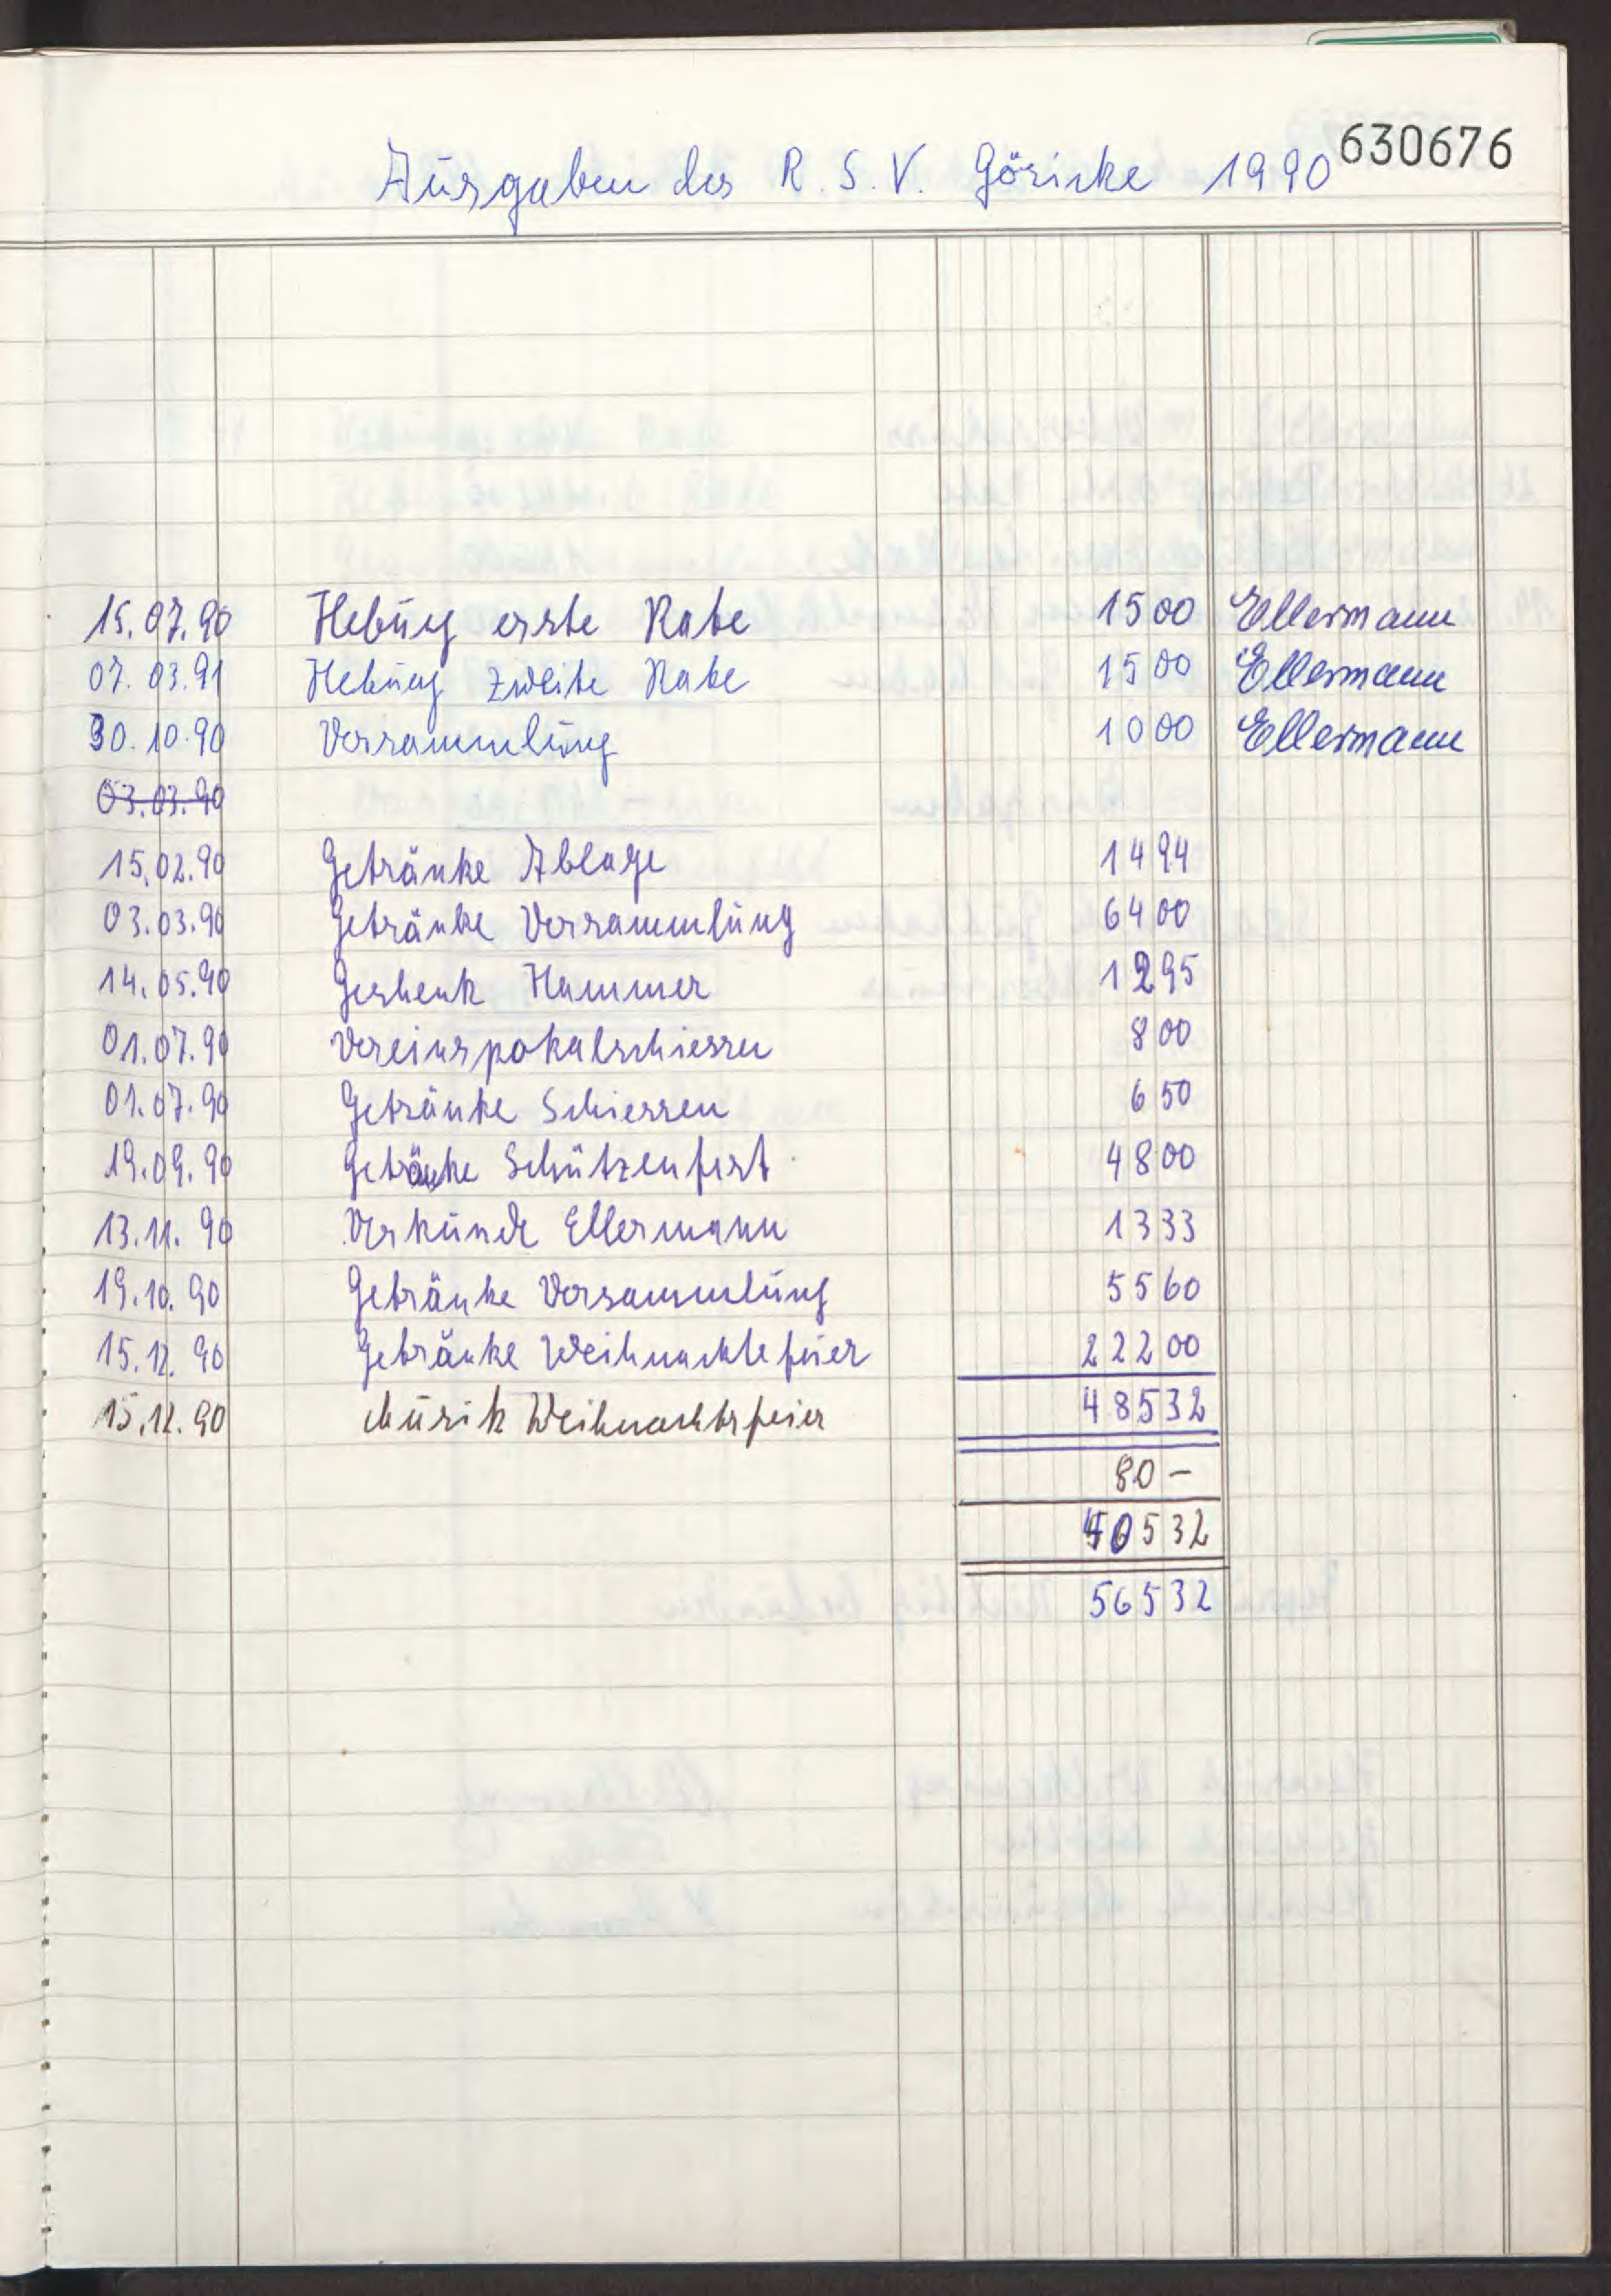 630676
Ausgaben des R.S.V. Göricke 1990
15.07.90 Hebung erste Rate 1500 Ellermann
07.03.91 Hebung zweite Rate 1500 Ellermann
30.10.90 Versammlung 1000 Ellermann
03.03.90
15.02.90 Getränke Ablage 1494
03.03.90 Getränke Versammlung 6400
14.05.90 Geshenk Hammer 1295
01.07.90 Vereinspokalschiessen 800
01.07.90 Getränke Schiessen 650
19.09.90 Getränke Schützenfest 4800
13.11.90 Urkunde Ellermann 1333
19.10.90 Getränke Versammlung 5560
15.12.90 Getränke Weihnachtsfeier 22200
15.12.90 Musik Weihnachtsfeier 48532
80-
532
56532